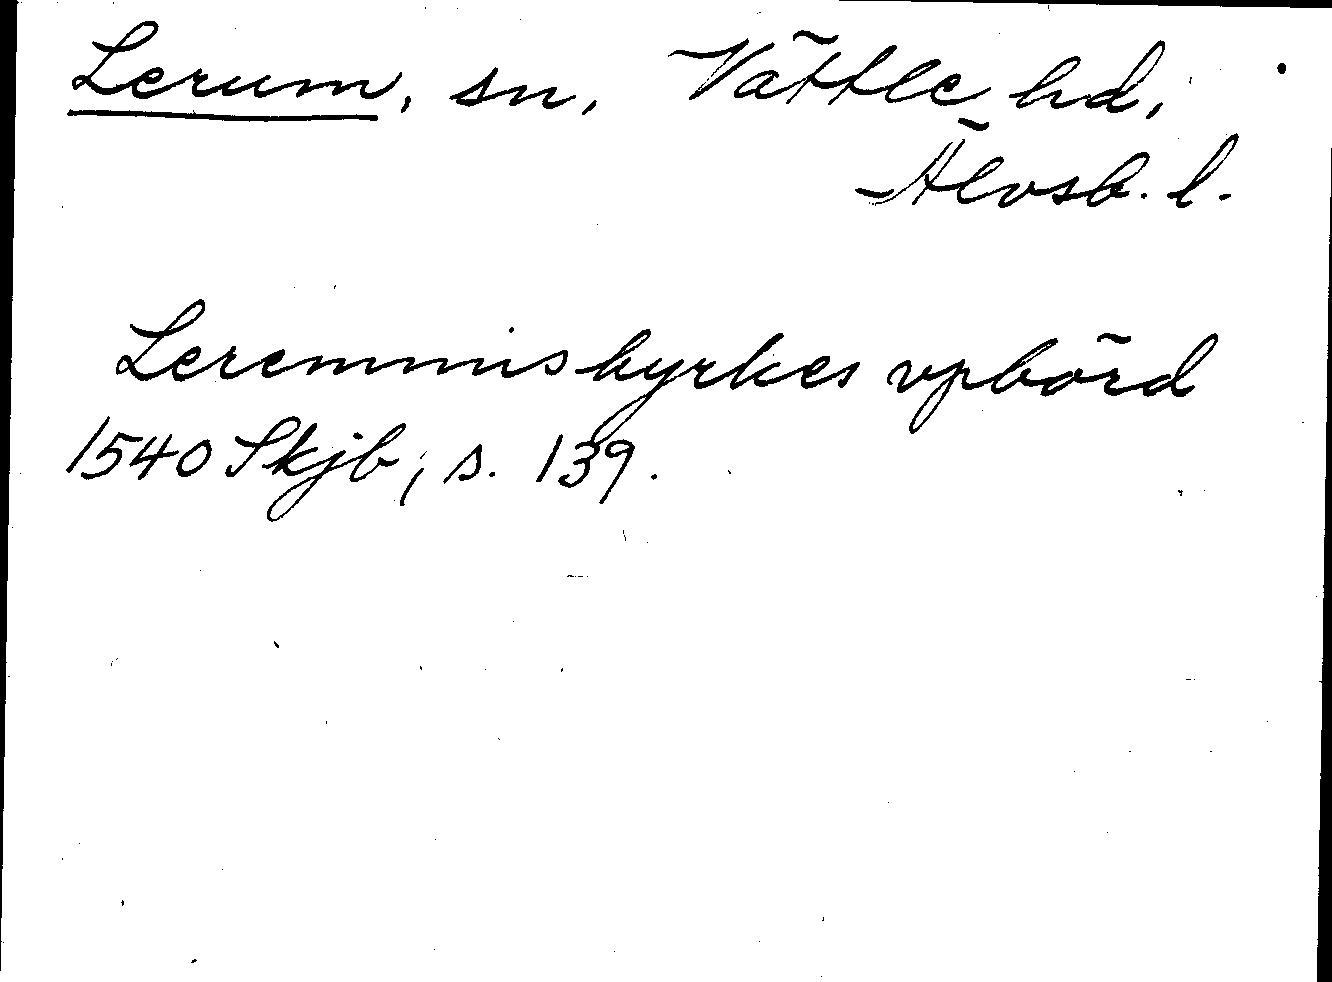 Lerum, sn, Vättle hd,
Älvsb. l.
Leremmis kyrkes vpbörd
1540 Skjb, s. 139.